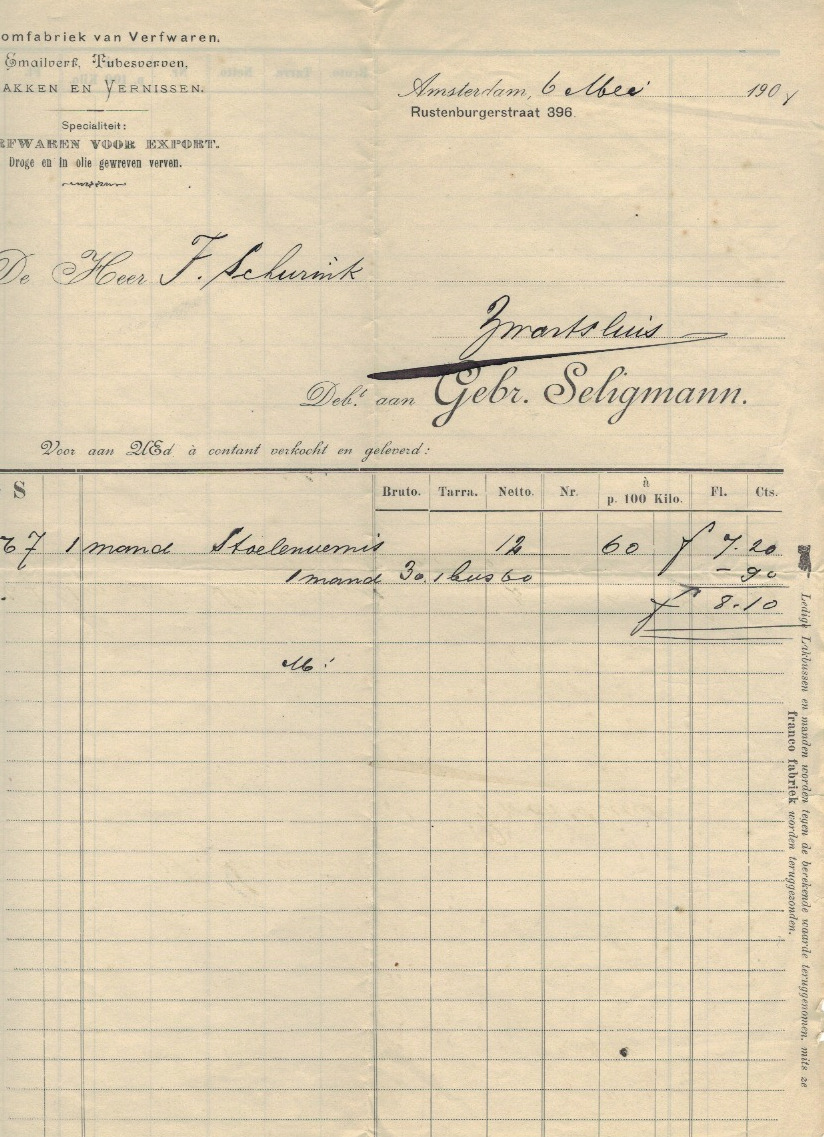 omfabriek van Verfwaren.
Emailverf, Tubesverven,
AKKEN EN VERNISSEN.
Specialiteit:
RFWAREN VOOR EXPORT.
Droge en in olie gewreven verven.
Amsterdam, 6 Mei 190
Rustenburgerstraat 396.
De Heer F. Schurink
Zwartsluis
Deb.t aan Gebr. Seligmann.
Voor aan UEd. à contant verkocht en geleverd:
S Bruto. Tarra. Netto. Nr. à p. 100 Kilo. Fl. Cts.
67 1 mand Stoelenvernis 12 60 f 7.20
1 mand 30. 1 bus 60 - 90
f 8.10
Ledige Lakbussen en manden worden tegen de berekende waarde teruggenomen, mits ze
franco fabriek worden teruggezonden.